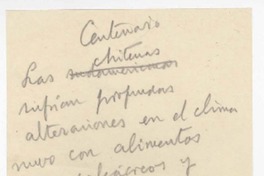 Centenario
chilenas
Las sudamericanas
sufrían profundas
alteraciones en el clima
nuevo con alimentos
y